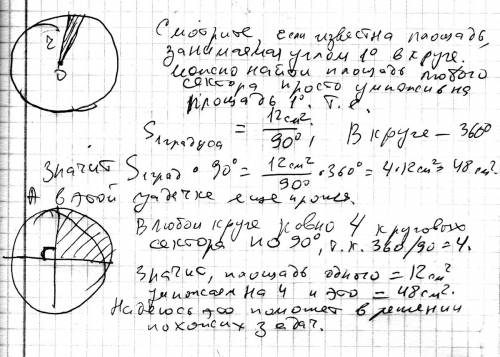 Смотрите, если известна площадь,
занимаемая углом 1° в круге.
можно найти площадь любого
сектора просто умножив на
площадь 1°. Т.е.
r
O
S 1 градуса = 12см²/90°, В круге – 360°
Значит S 1град • 90° = 12см²/90° • 360° = 4•12см² = 48см².
А в этой задачке еще проще.
В любом круге ровно 4 круговых
сектора по 90°, т.к. 360/90 = 4.
Значит, площадь одного = 12см²
умножаем на 4 и это = 48см².
Надеюсь это поможет в решении
похожих задач.